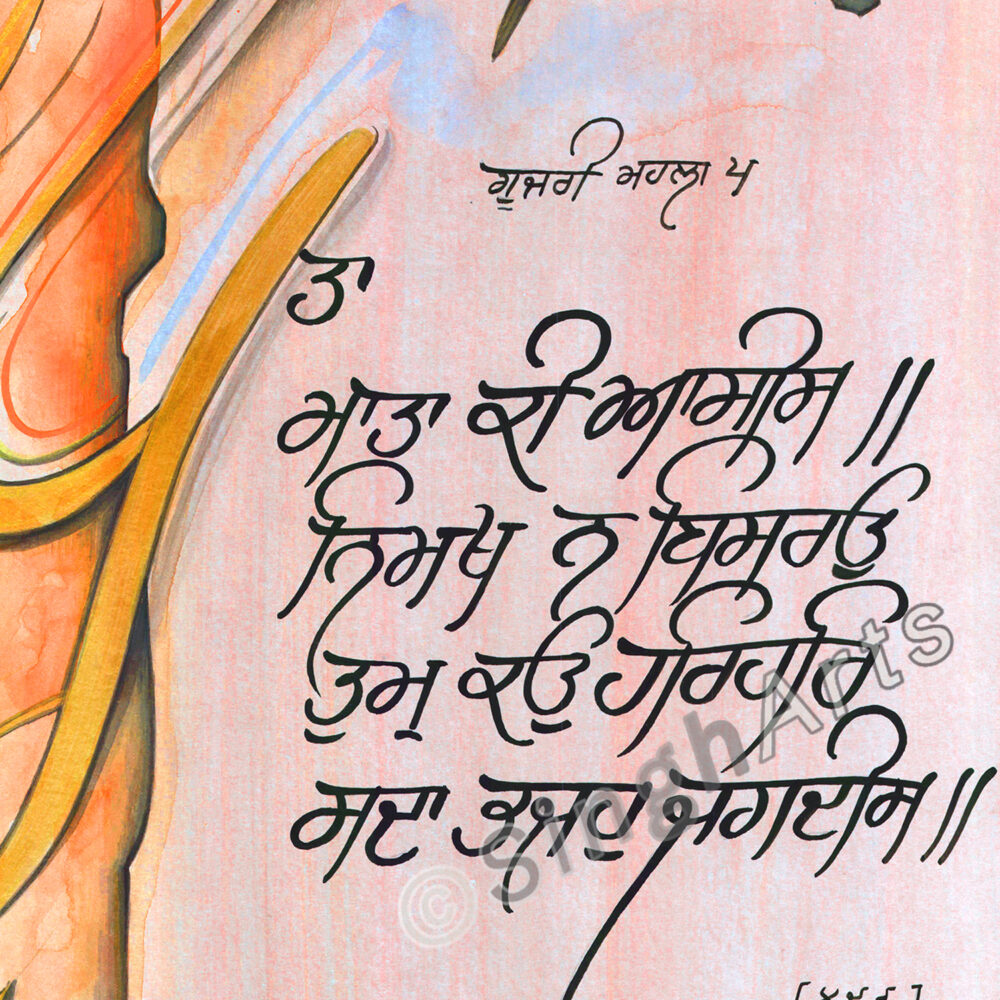 ਗੂਜਰੀ ਮਹਲਾ ੫
ਤਾ
ਮਾਤਾ ਕੀ ਆਸੀਸ ॥
ਨਿਮਖ ਨ ਬਿਸਰਉ
ਤੁਮ੍ ਕਉ ਹਰਿ ਹਰਿ
ਸਦਾ ਭਜਹੁ ਜਗਦੀਸ ॥
© SinghArts